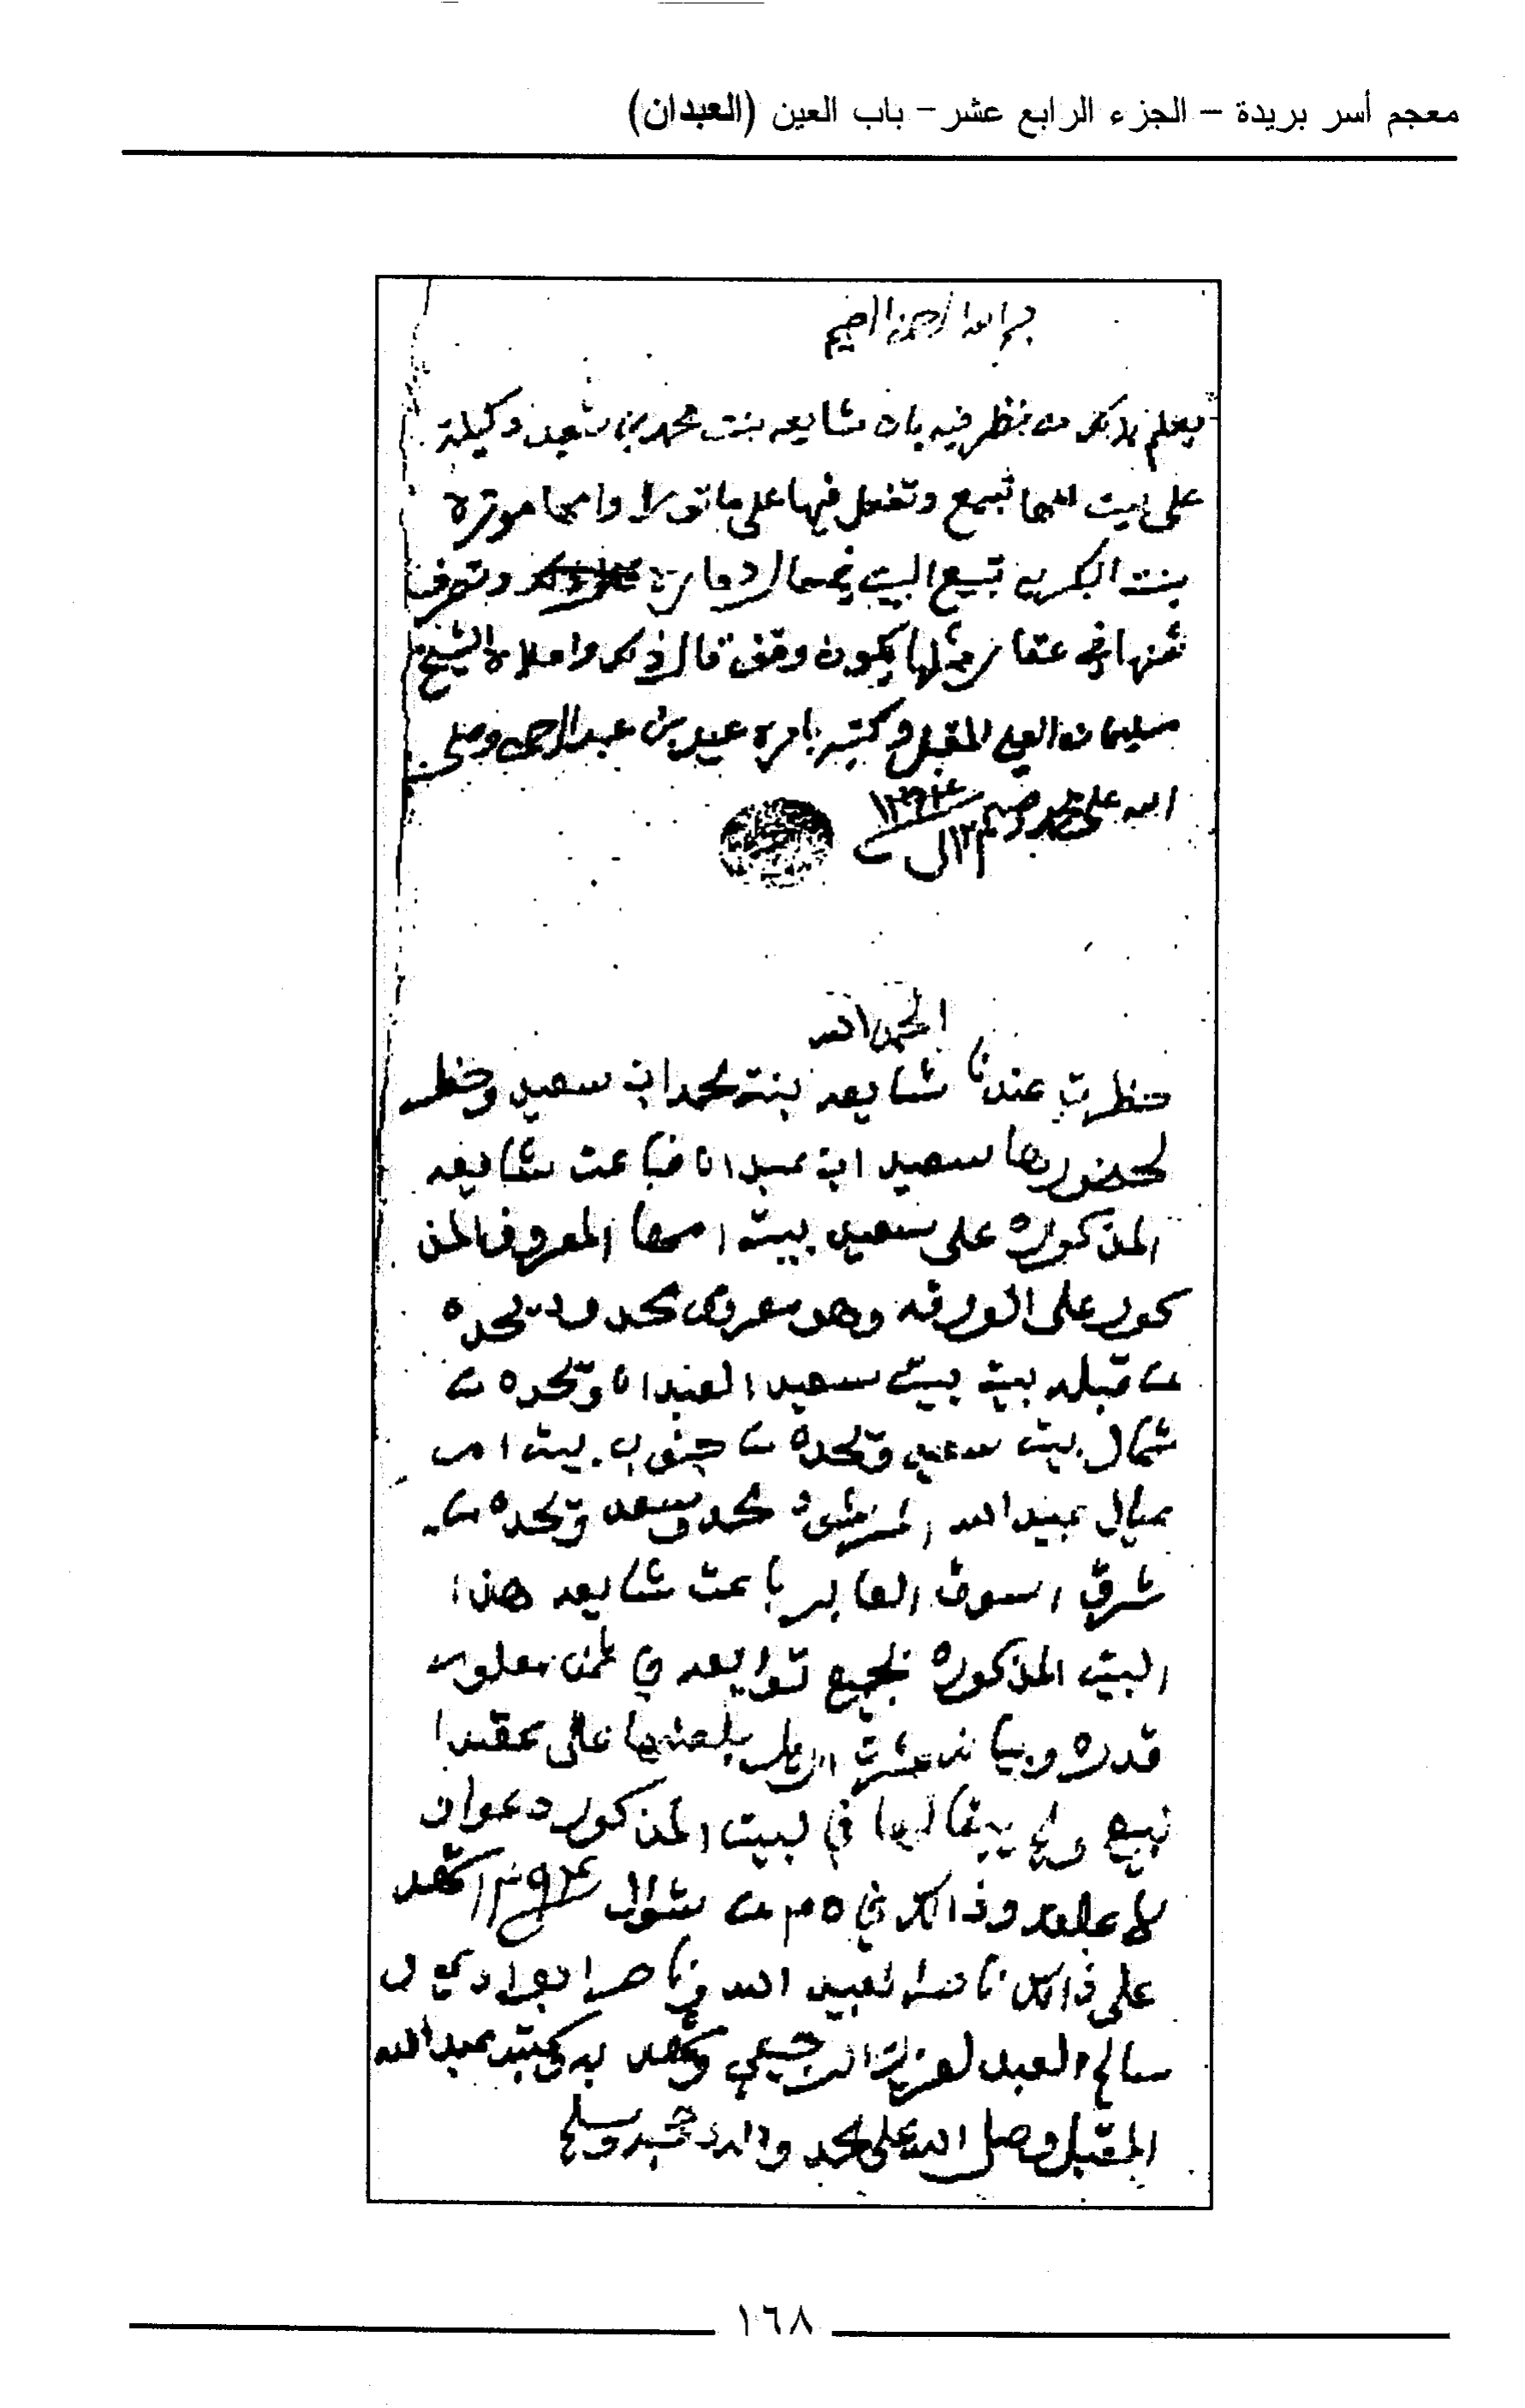 معجم أسر بريدة – الجزء الرابع عشر – باب العين (العبدان)
بسم الله الرحمن الرحيم
يعلم بذلك من ينظر فيه بان شايعه بنت محمد بن سعيد وكيلة
على بيت امها تبيع وتفعل فيها على ما تورا وامها موتره
بنت البكريه تبيع البيت وتصرف
ثمنها في عقار مثلها يكون وقف قال ذلك واملاه الشيخ
سليمان العلي المقبل وكتبه بامره عبد الرحمن وصلى
الله على محمد وسلم
الحمد لله
حظرت عندنا شايعه بنت محمد ابن سعيد وحظر
لحضورها سعيد ابن عبدان فباعت شايعه
المذكوره على سعيد بيت امها المعروف المذ
كور على الورقه وهو معروف محدود يحده
من قبله بيت بيت سعيد العبدان ويحده من
شمال بيت سعيد ويحده من جنوب بيت ام
عيال عبيد الله المرشود محمد وسعد ويحده من
شرق السوق العابر باعت شايعه هذا
البيت المذكوره بجميع توابعه في ثمن معلوم
قدره وبيانه عشرت اريل بلعنها على عقد
لبيع ولم يبقا لها في لبيت المذكور دعوات
ولا علقه وذالك في من شوال شهد
على ذالك ناصر لعبيد الله وناصر
سالم العبد لعزيز الرجيعي وشهد به وكتبه عبد الله
المقبل وصل الله على محمد واله وصحبه وسلم
١٦٨